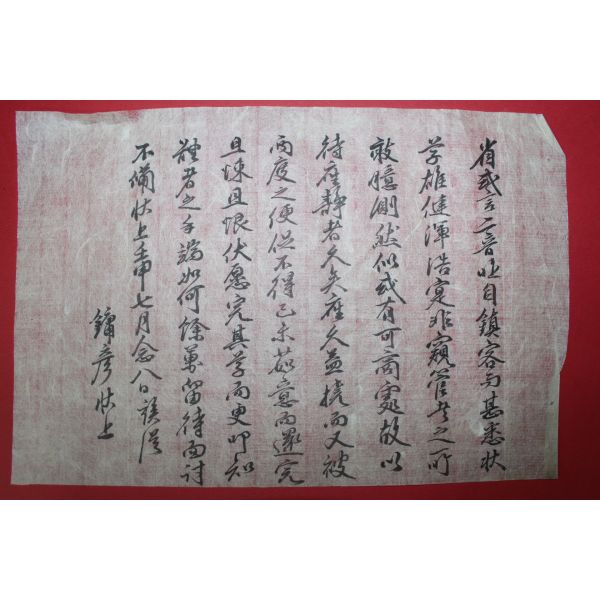 省式言 音 自鎮客向甚悉状
字雄健渾浩寔非窺管者之所
敢臆測然似或有可商處故以
待座靜者久矣座久益擾而又被
兩度之便促不得已未 意而還完
且悚且恨伏愿完其字而更叩知
體者之手端如何餘萬留待面討
不備狀上壬申七月念八日族從
鏞彦狀上